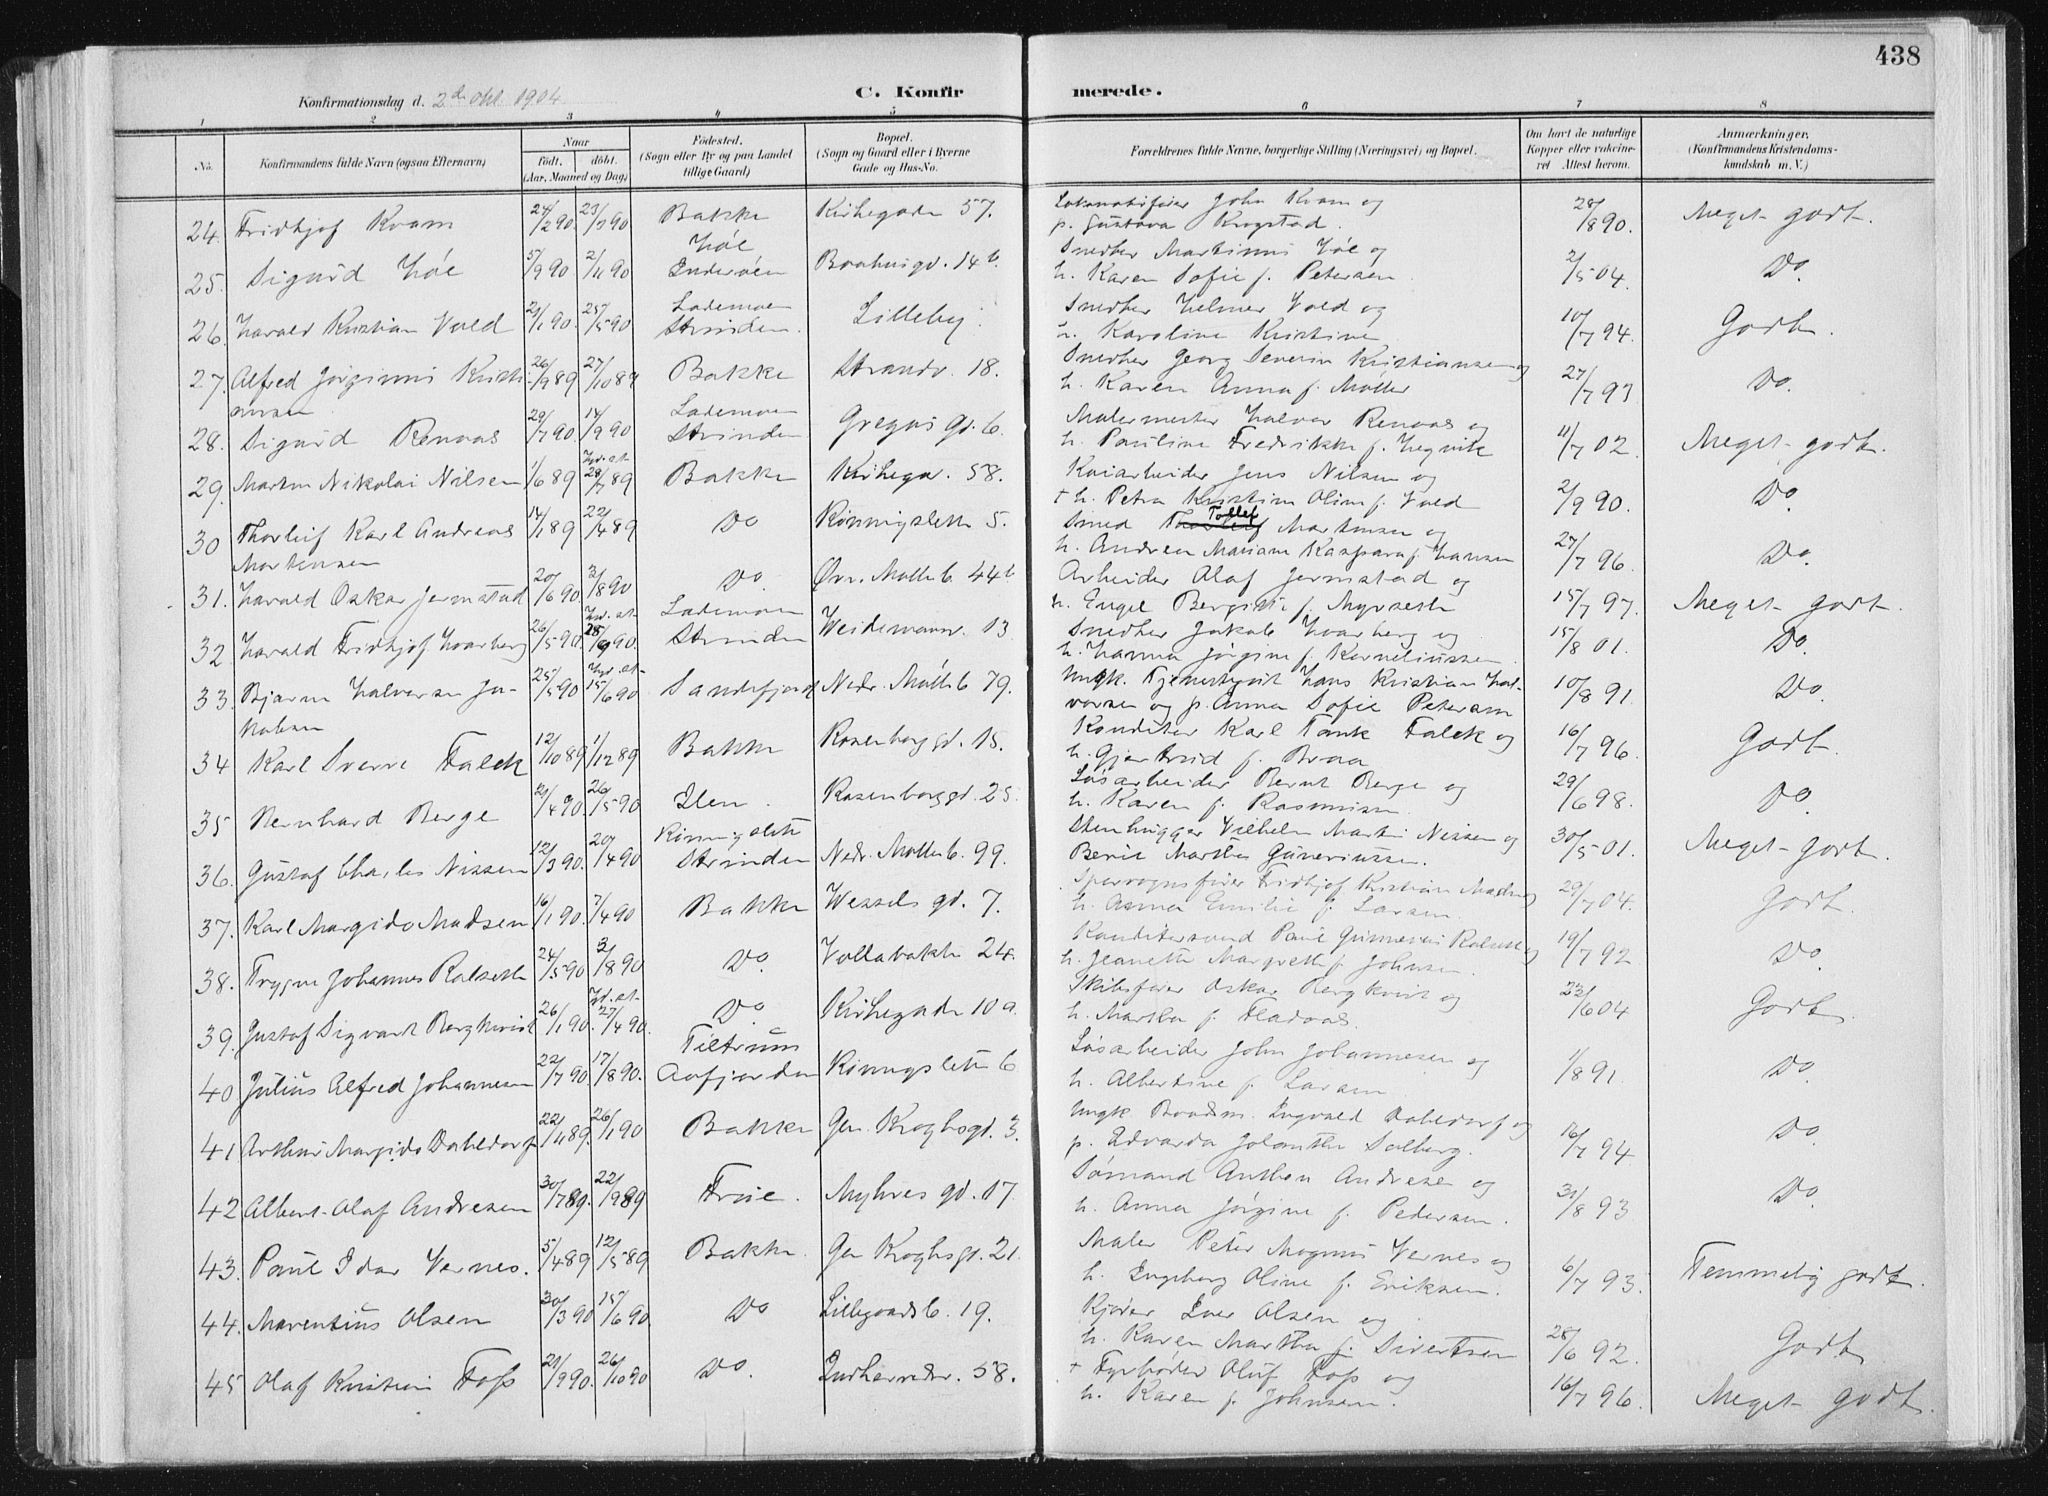 438
Konfirmationsdag d. 2den okt. 1904
C. Konfirmerede.
1 2 3 4 5 6 7 8
No. Konfirmandens fulde Navn (ogsaa Efternavn) Naar født, døbt. (Aar, Maaned og Dag) Fødested. (Sogn eller By og paa Landet tillige Gaard) Bopæl. (Sogn og Gaard eller i Byerne Gade og Hus-No. Forældrenes fulde Navne, borgerlige Stilling (Næringsvei) og Bopæl. Om havt de naturlige Kopper eller vaccineret Attest herom. Anmærkninger. (Konfirmandens Kristendomskundskab m. V.)
24. Fridthjof Kvam 24/2 90 23/3 90 Bakke Kirkegaden 57. Lokomotivfører John Kvam og
p. Gustava Krogstad. 28/8 90. Meget godt.
25. Sigurd Høe 5/9 90 2/11 90 Høe
Inderøen Baahusgd. 14 b. Snedker Martinus Høe og
h. Karen Sofie f. Petersen. 2/5 04. Do.
26. Harald Kristian Vold 21/1 90. 25/5 90 Lademoen
Strinden. Lilleby. Snedker Helmer Vold og
h. Karoline Kristine 10/7 94. Godt.
27. Alfred Jørginus Kristi-
ansen 26/9 89 27/10 89 Bakke Strandv. 18. Snedker Georg Severin Kristiansen og
h. Karen Anna f. Møller 27/7 93 Do.
28. Sigurd Renaas 29/7 90. 14/9 90 Lademoen
Strinden Gregus gd. 6. Malermester Halvor Renaas og
h. Pauline Fredrikke f. Hegvik 11/7 02. Meget godt.
29. Martin Nikolai Nilsen 1/6 89 Hjd. at. 28/7 89 Bakke Kirkegd. 58. Kaiarbeider Jens Nilsen og
+ h. Petra Kristine Oline f. Vold 2/9 90. Do.
30 Thorleif Karl Andreas
Mortensen 14/1 89 22/4 89 Do Rønningsletta 5. Smed Tollef Mortensen og
h. Andrea Mariane Kaspara f. Hansen 27/7 96. Do.
31. Harald Oskar Jermstad 20/6 90. 3/8 90 Do. Øvr. Mølleb. 44 b Arbeider Olaf Jermstad og
h. Engel Bergitte f. Myrseth 15/7 97. Meget godt.
32 Harald Fridthjof Hvarberg 26/5 90. Hjd. at. 28/6 90. Lademoen
Strinden Weidemannv. 13 Snedker Jakob Hvarberg og
h. Hanna Jørgine f. Korneliussen. 15/8 01. Do.
33. Bjarne Halvorsen Ja-
kobsen 25/5 90 Hjd. at. 15/6 90 Sandefjord Nedr. Mølleb 79. Ungk. Tjenestegut Hans Kristian Hal-
vorsen og p. Anna Sofie Petersen 10/8 91. Do.
34 Karl Sverre Falck 12/10 89 1/12 89 Bakke Rosenborg gd. 15. Konditor Karl Tank Falck og
h. Gjertrud f. Braa 16/7 96. Godt.
35 Bernhard Berge 21/4 90. 26/5 90 Ilen. Rosenborggd. 25. Løsarbeider Bernt Berge og
h. Karen f. Rasmussen 29/6 98. Do.
36. Gustaf Charles Nissen 12/3 90. 20/4 90 Rønningsletta
Strinden Nedr. Mølleb. 99. Stenhugger Vilhelm Martin Nissen og
Berit Marthea Guneriussen. 30/5 01. Meget godt.
37. Karl Margido Madsen 16/1 90. 7/4 90 Bakke Wessels gd. 7. Sporvognsfører Fridthjof Kristian Madsen og
h. Anna Emilie f. Larsen. 29/7 04. Godt.
38. Trygve Johannes Ralseth 24/5 90 3/8 90 Do. Vollabakken 24. Konditorsvend Paul Gunnerius Ralseth og
h. Jeanette Margrethe f. Johnsen. 19/7 92 Do.
39. Gustaf Sigvart Bergkvist 26/1 90. Hjd. at. 27/4 90. Do. Kirkegaden 10 a. Skibsfører Oskar Bergkvist og
h. Martha f. Fladaas. 23/6 04 Godt.
40. Julius Alfred Johannesen 22/7 90 17/8 90. Tiltrum
Aafjorden Rønningsletta 6 Løsarbeider John Johannesen og
h. Albertine f. Larsen 1/8 91. Do
41 Arthur Margido Dahledorf 22/11 89. 26/1 90 Bakke Gen. Kroghsgd. 3. Ungk Baadsm. Ingvald Dahledorf og
p. Edvarda Jolanthe Solberg. 16/7 94. Do.
42 Albert Olaf Andresen 30/7 89. 22/9 89 Frue. Myhres gd. 17. Sømand Anthon Andresen og
h. Anna Jørgine f. Pedersen. 31/8 93 Do.
43. Paul Idar Vernes. 5/4 89 12/5 89 Bakke. Gen Kroghsgd. 21. Maler Peter Magnus Vernes og
h. Ingeborg Oline f. Eriksen. 6/7 93. Temmelig godt.
44. Marentius Olsen 30/3 90 15/6 90. Do Lillegaardsb. 19. Kjører Iver Olsen og
h. Karen Martha f. Sivertsen 28/6 92. Godt
45 Olaf Kristian Foss 21/9 90. 26/10 90 Do. Indherredsv. 58. + Fyrbøder Oluf Foss og
h. Karen f. Johnsen. 16/7 96. Meget godt.